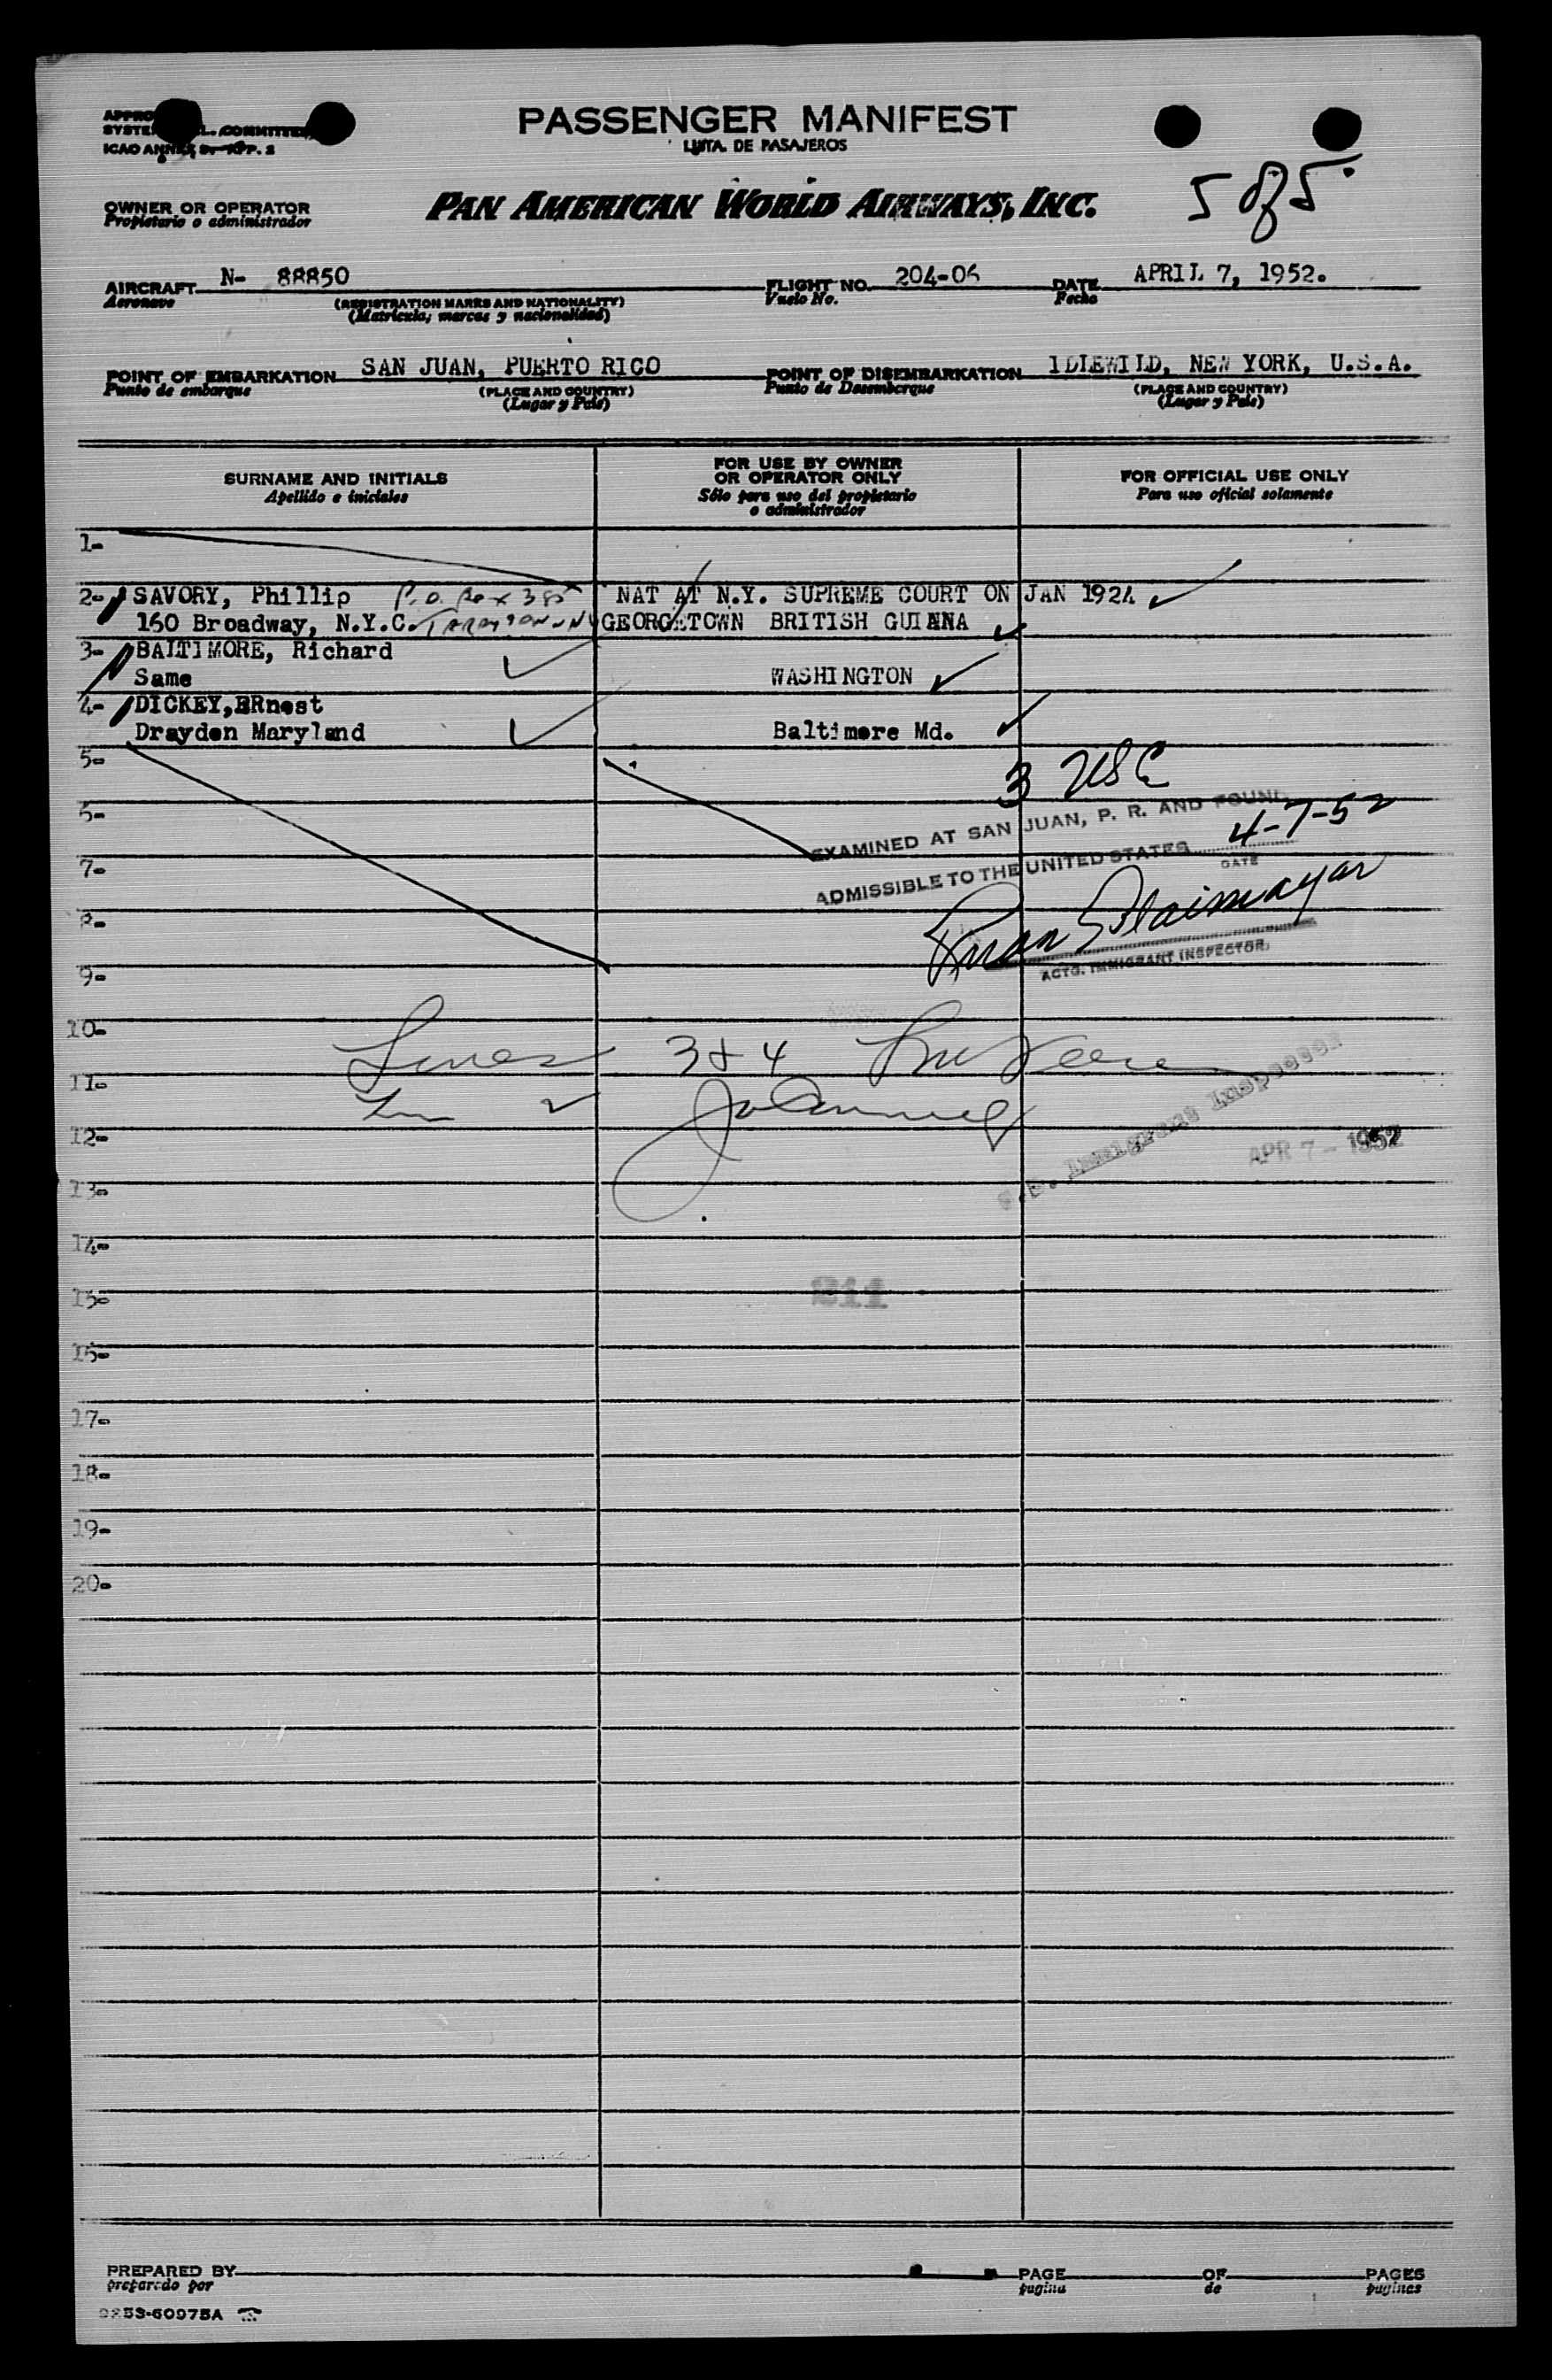 PASSENGER MANIFEST
LISTA DE PASAJEROS
ICAO ANNEX 9- APP. 2
OWNER OR OPERATOR
Propietario o administrador
PAN AMERICAN WORLD AIRWAYS, INC.
5 of 5
AIRCRAFT N- 88850
Aeronave
(REGISTRATION MARKS AND NATIONALITY)
(Matricula, marcas y nacionalidad)
FLIGHT NO. 204-06
Vuelo No.
DATE APRIL 7, 1952.
Fecha
POINT OF EMBARKATION SAN JUAN, PUERTO RICO
Punto de embarque
(PLACE AND COUNTRY)
(Lugar y País)
POINT OF DISEMBARKATION IDLEWILD, NEW YORK, U.S.A.
Punto de Desembarque
(PLACE AND COUNTRY)
(Lugar y País)
SURNAME AND INITIALS
Apellido e iniciales
FOR USE BY OWNER
OR OPERATOR ONLY
Sólo para uso del propietario
o administrador
FOR OFFICIAL USE ONLY
Para uso oficial solamente
1-
2- SAVORY, Phillip P.O. Box 385 NAT AT N.Y. SUPREME COURT ON JAN 1924
150 Broadway, N.Y.C. GEORGETOWN BRITISH GUIANA
3- BALTIMORE, Richard
Same WASHINGTON
4- DICKEY, ERnest
Drayden Maryland Baltimore Md.
5-
3 USC
6-
EXAMINED AT SAN JUAN, P. R. AND FOUND
ADMISSIBLE TO THE UNITED STATES 4-7-52
DATE
7-
8-
ACTG. IMMIGRANT INSPECTOR
9-
10-
Lines 3 & 4
11-
2
U.S. Immigrant Inspector
12-
APR 7 - 1952
13-
14-
15-
211
16-
17-
18-
19-
20-
PREPARED BY
preparado por
PAGE
pagina
OF
de
PAGES
paginas
60975A